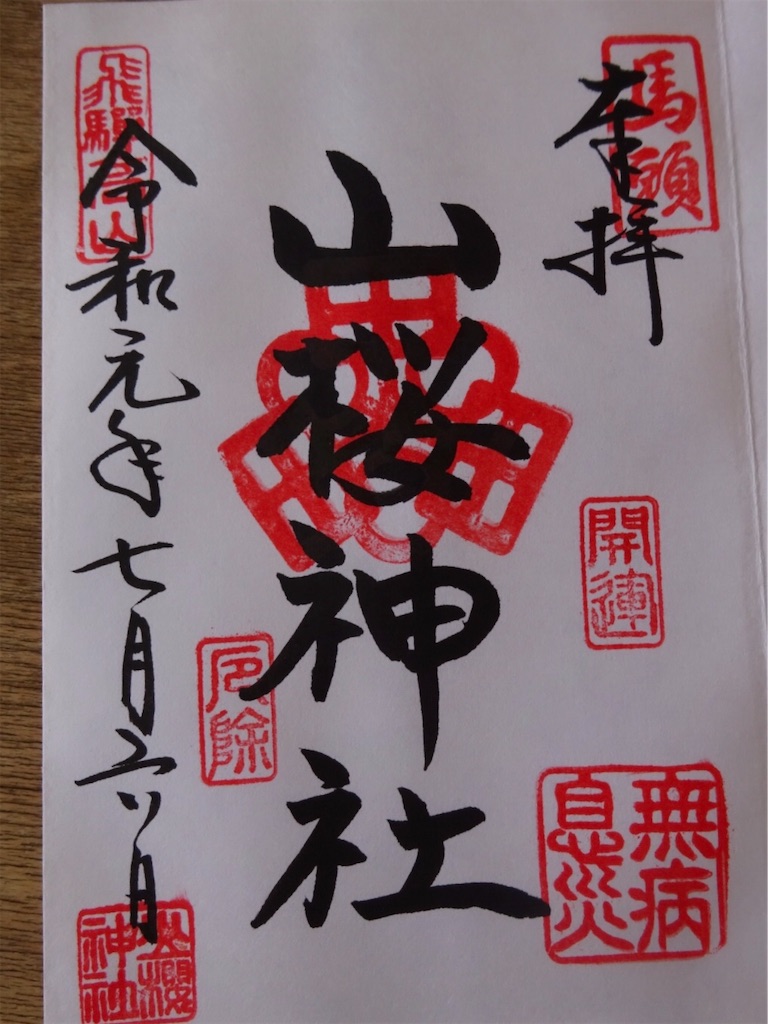 馬頭
奉拝
開運
無病
息災
山桜神社
厄除
飛驒高山
令和元年七月六日
山櫻
神社